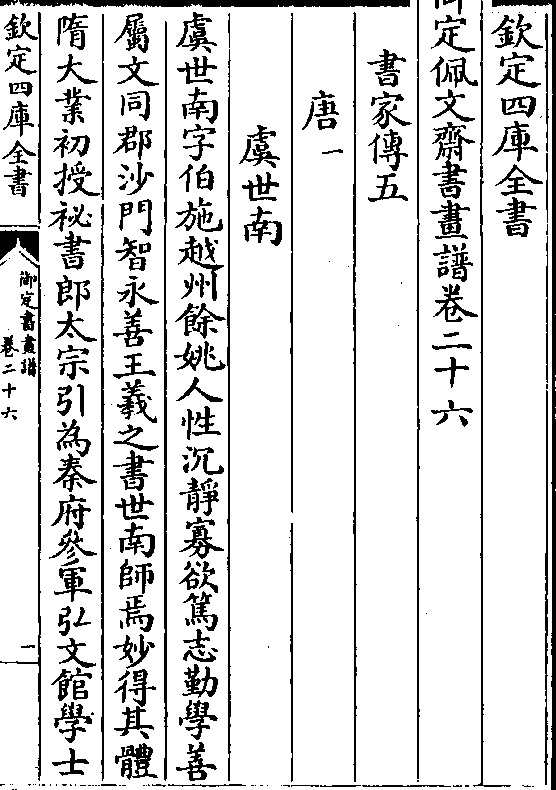 欽定四庫全書
御定佩文齋書畫譜卷二十六
書家傳五
唐一
虞世南
虞世南字伯施越州餘姚人性沉靜寡欲篤志勤學善
屬文同郡沙門智永善王羲之書世南師焉妙得其體
隋大業初授祕書郎太宗引為秦府參軍弘文館學士
欽定四庫全書
御定書畫譜
卷二十六
一